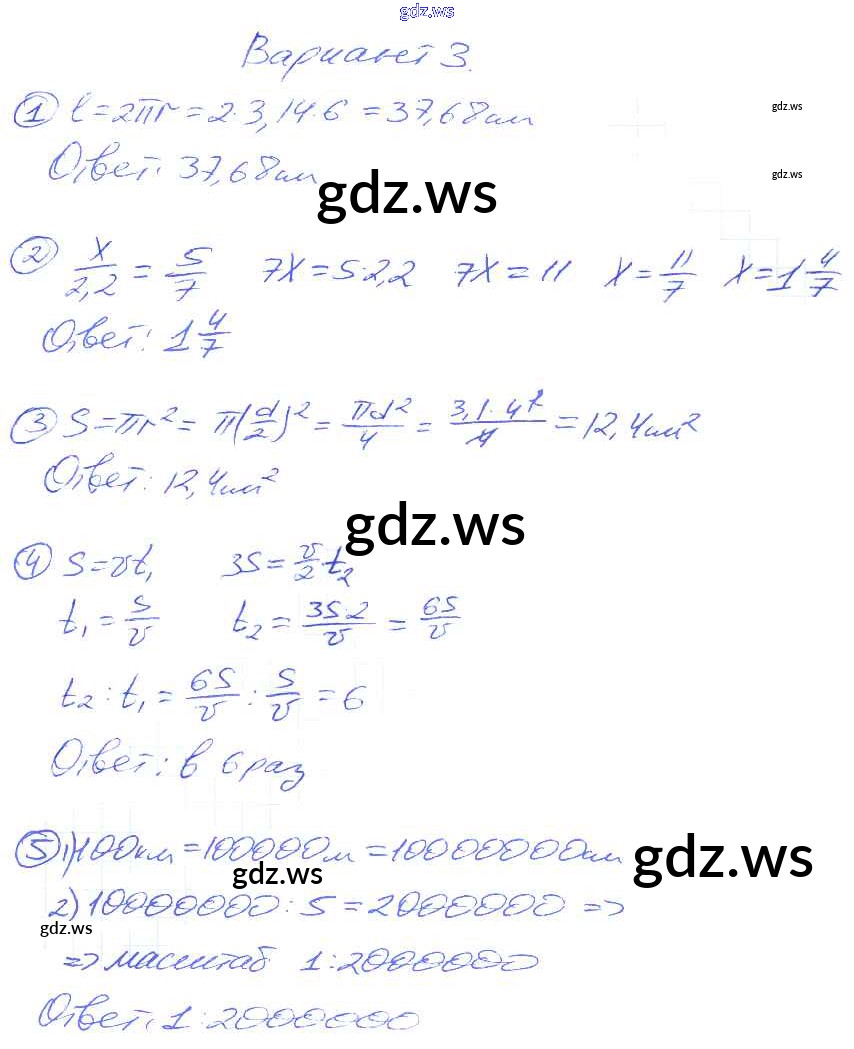 gdz.ws
Вариант 3.
① l=2πr=2·3,14·6=37,68см
gdz.ws
Ответ: 37,68см
gdz.ws
gdz.ws
② x/2,2 = 5/7 7x=5·2,2 7x=11 x=11/7 x=1 4/7
Ответ: 1 4/7
③ S=πr²= π(d/2)²= πd²/4 = 3,1·4²/4 =12,4см²
Ответ: 12,4см²
gdz.ws
④ S=vt₁ 3S=v/2·t₂
t₁=S/v t₂=3S·2/v=6S/v
t₂:t₁=6S/v:S/v=6
Ответ: в 6 раз
⑤ 1)100км=100000м=10000000см
gdz.ws
gdz.ws
2)10000000:5=2000000 =>
gdz.ws
=> масштаб 1:2000000
Ответ: 1:2000000